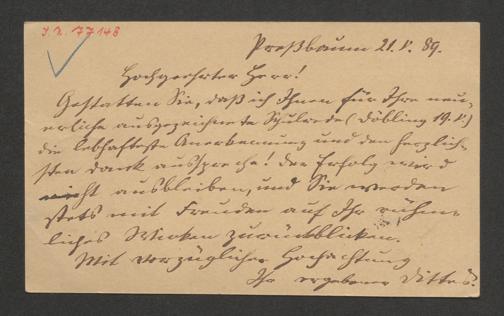 J.N. 77148
Preßbaum 21.V.89.
Hochgeehrter Herr!
Gestatten Sie, daß ich Ihnen für Ihre neu-
erliche ausgezeichnete Schulrede (Döbling 19.V.)
die lebhafteste Anerkennung und den herzlich-
sten Dank ausspreche! Der Erfolg wird
nicht ausbleiben, und Sie werden
stets mit Freuden auf Ihr rühm-
liches Wirken zurückblicken.
Mit vorzüglicher Hochachtung
Ihr ergebener Dittes.